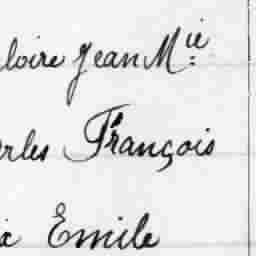 loire Jean Mie
rles François
Emile